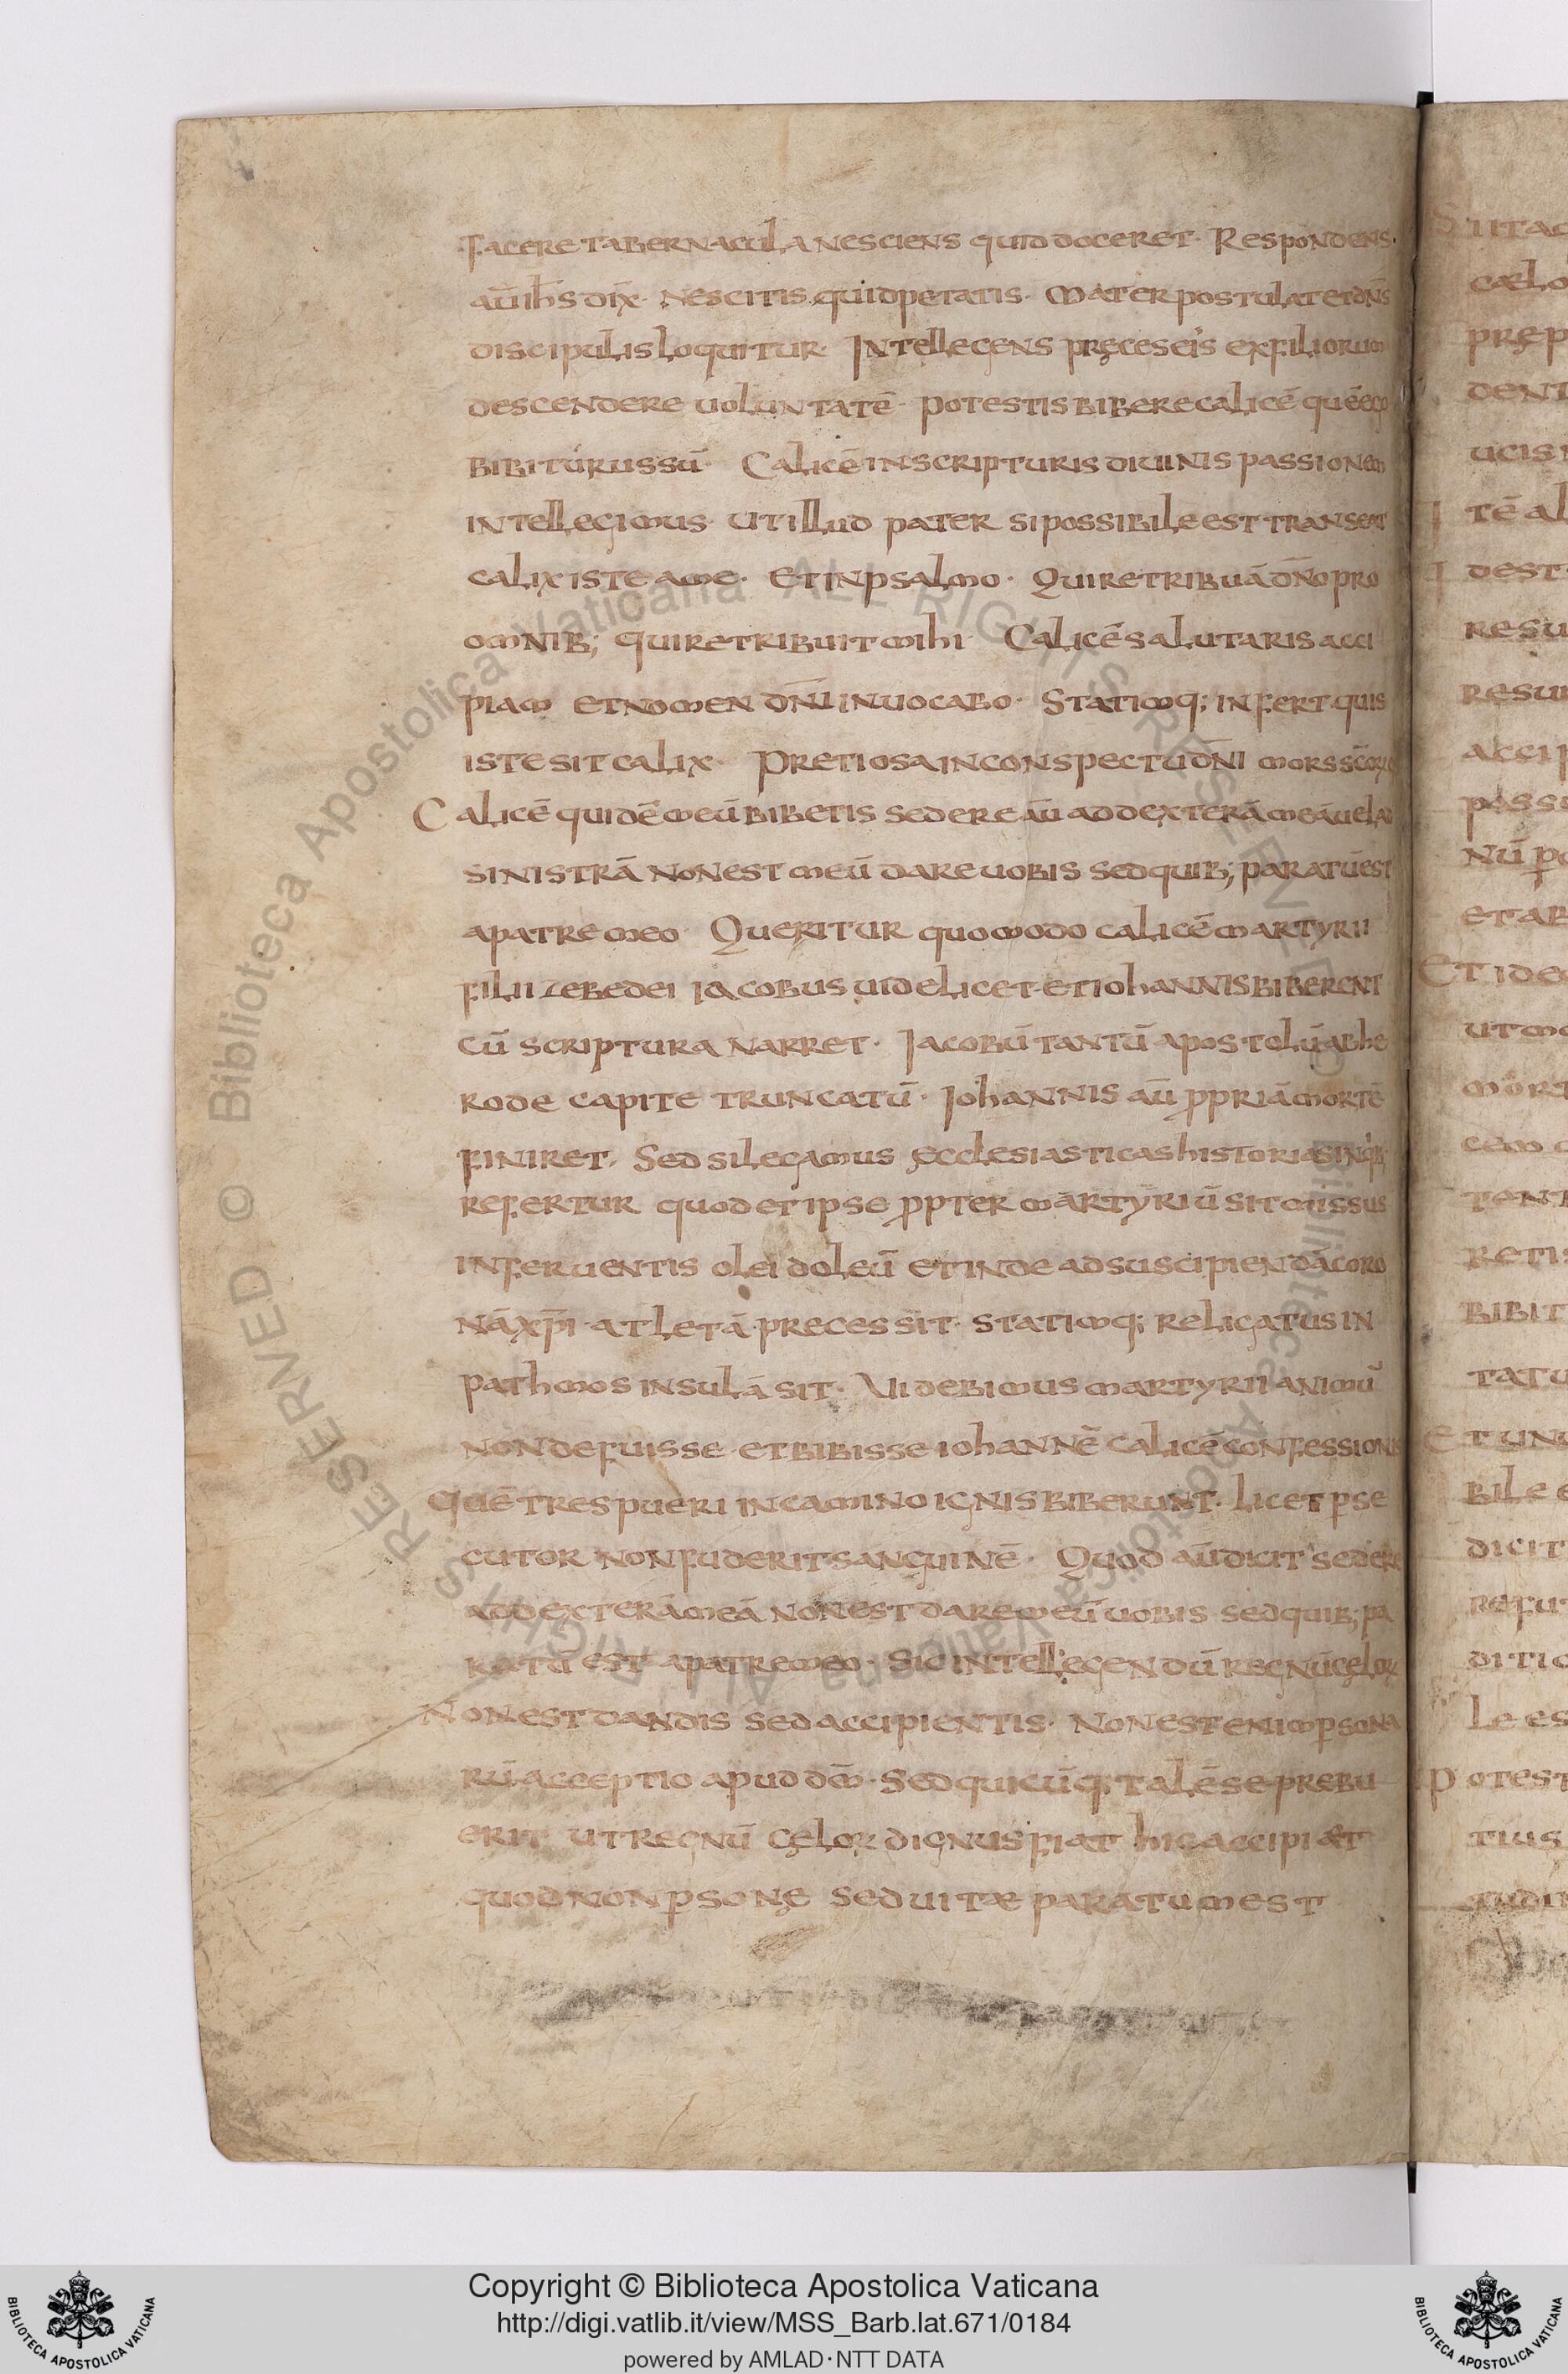 facere tabernacula nesciens quid doceret· Respondens·
aū ihs̄ dix̄· Nescitis quid petatis· Mater postulat et dn̄s
discipulis loquitur· Intellegens pręces eis ex filiorum
descendere uoluntatē· potestis bibere calicē quē ego
bibiturus sū· Calicē in scripturis diuinis passionem
intellegimus· ut illud pater si possibile est transeat
calix iste a me· Et in psalmo· Qui retribuā dn̄o pro
omnib; qui retribuit mihi· Calicē salutaris acci
piam et nomen dn̄i inuocabo· Statimq; infert quis
iste sit calix· Pretiosa in conspectu dn̄i mors sc̄oꝝ
Calicē quidē meū bibetis sedere aū ad dexterā meā uel ad
sinistrā non est meū dare uobis sed quib; paratū est
a patre meo· Queritur quomodo calicē martyrii
filii zebedei iacobus uidelicet et iohannis biberent
cū scriptura narret· Jacobū tantū apostolū ab he
rode capite truncatū· Johannis aū ꝓpriā mortē
finiret· Sed si legamus ecclesiasticas historias in qib;
refertur quod et ipse ꝓpter martyriū sit missus
in feruentis olei doleū et inde ad suscipiendā coro
nā xp̄i atletā precessit· statimq; religatus in
pathmos insulā sit· Videbimus martyrii animū
non defuisse et bibisse iohannē calicē confessionis
quē tres pueri in camino ignis biberunt· licet p̱se
cutor non fuderit sanguinē· Quod aū dicit sedere
ad dexterā meā non est dare meū uobis sed quib; pa
ratū est a patre meo· Sic intellegendū regnū cęloꝝ
Non est dandis sed accipientis· Non est enim p̱sona
rū acceptio apud dm̄· Sed quicūq; talē se prebu
erit ut regnū cęloꝝ dignus fiat hic accipiæt
quod non p̱sonę sed uitæ paratum est
Copyright © Biblioteca Apostolica Vaticana
http://digi.vatlib.it/view/MSS_Barb.lat.671/0184
powered by AMLAD·NTT DATA